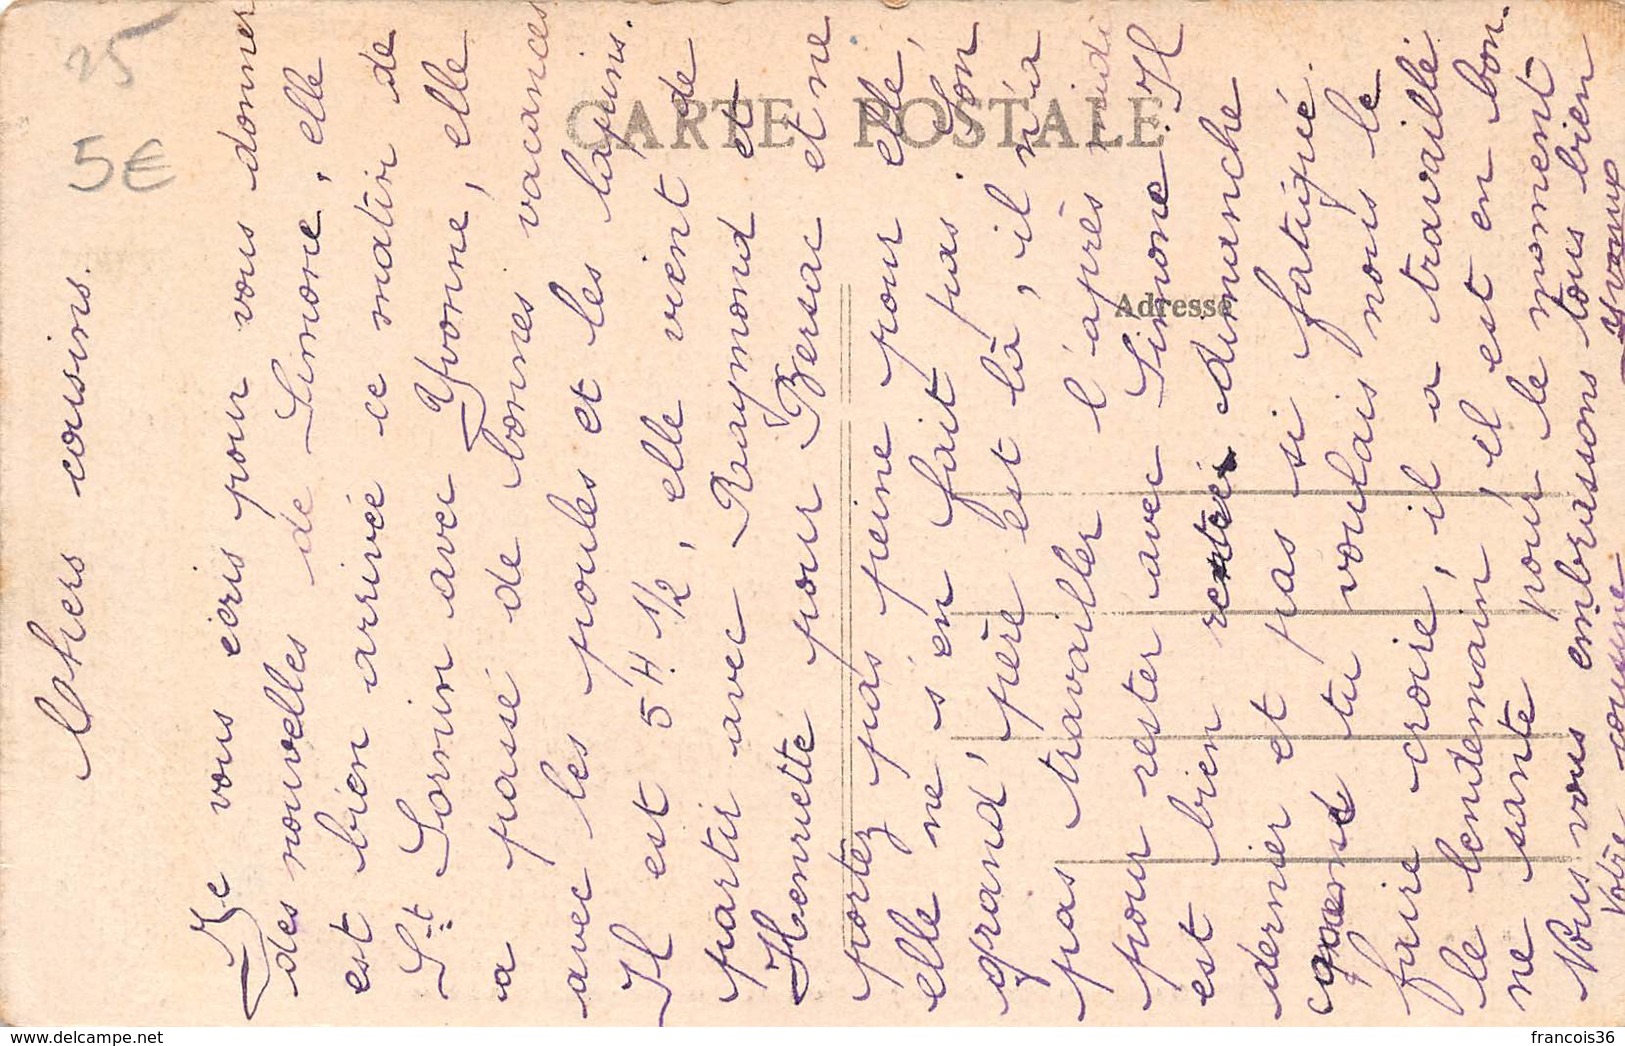 25
5€
CARTE POSTALE
Adresse
Chers cousins.
Je vous écris pour vous donner
des nouvelles de Simone, elle
est bien arrivée ce matin de
St Sornin avec Yvonne, elle
a passé de bonnes vacances
avec les poules et les lapins.
Il est 5 H. 1/2, elle vient de
partir avec Raymond et
Henriette pour Bersac et ne
portez pas peine pour elle,
elle ne s'en fait pas. Son
grand, père est là, il n'a
pas travailler l'après midi
pour rester avec Simone. Il
est bien rentrer dimanche
dernier et pas si fatigué.
comme tu voulais nous le
faire croire, il a travaillé
le lendemain il est en bon-
ne santé pour le moment
Nous vous embrassons tous bien
Votre cousine Yvonne
francois36